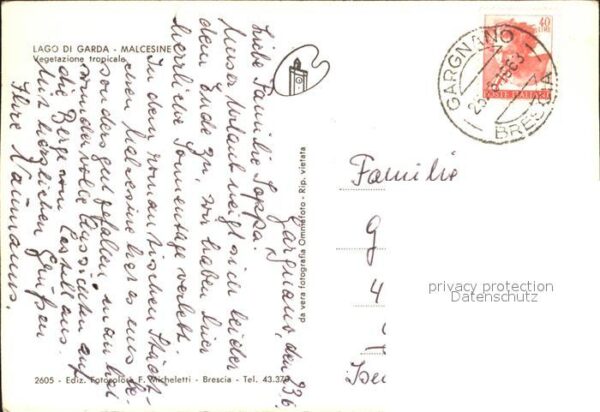 LAGO DI GARDA - MALCESINE
Vegetazione tropicale
Gargnano, den 23.6.
Liebe Familie Soppa!
Unser Urlaub neigt sich leider
dem Ende zu, wir haben hier
herrliche Sonnentage verlebt.
In dem romantischen Städt-
chen Malcesine hat es uns be-
sonders gut gefallen, man hat
wundervolle Aussichten auf
die Berge vom Castell aus.
Mit herzlichen Grüßen
Ihre
da vera fotografia Ommafoto - Rip. vietata
2605 - Ediz. Fotocolors F. Micheletti - Brescia - Tel. 43.370
40
POSTE ITALIANE
GARGNANO
BRESCIA
Familie
G
4
privacy protection
Datenschutz